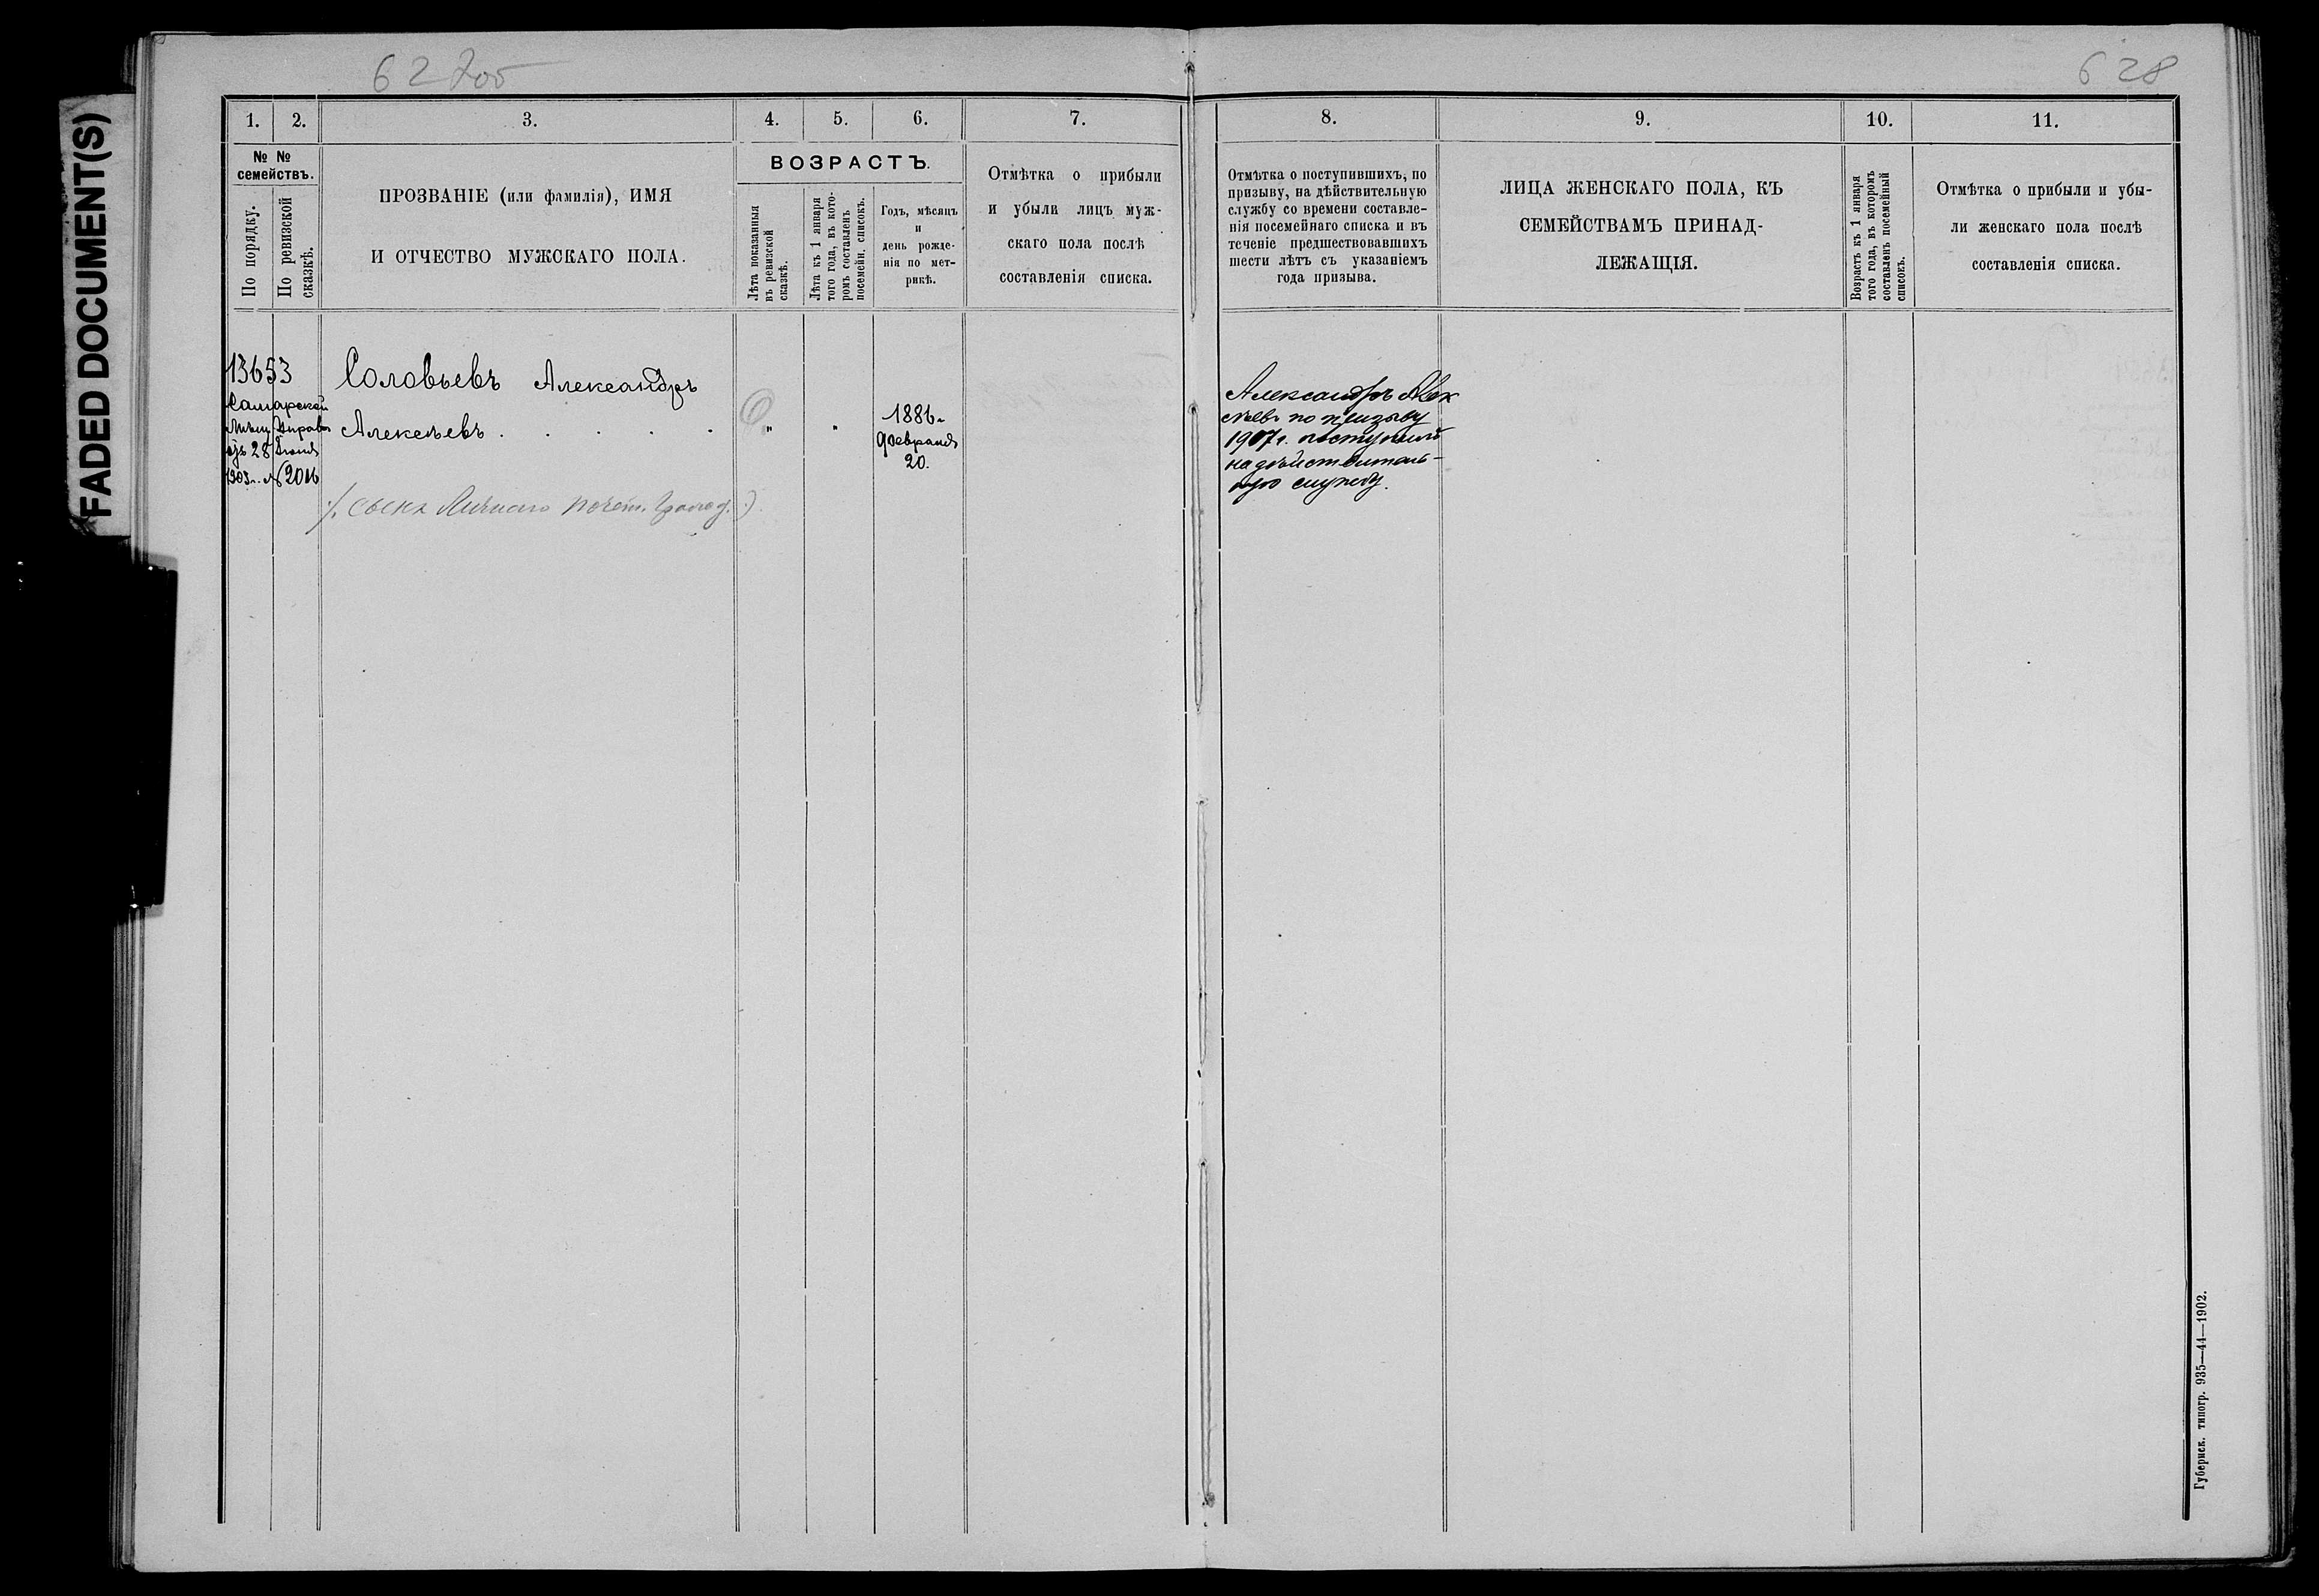 FADED DOCUMENT(S)
628
1.
2.
3.
4.
5.
6.
7.
№ №
семействъ.
По порядку.
По ревизской
сказкѣ.
ПРОЗВАНІЕ (или фамилія), ИМЯ
И ОТЧЕСТВО МУЖСКАГО ПОЛА.
ВОЗРАСТЪ.
Лѣта показанныя
въ ревизской
сказкѣ.
Лѣта къ 1 января
того года, въ кото-
ромъ составленъ
посемейн. списокъ.
Годъ, мѣсяцъ
и
день рожде-
нія по мет-
рикѣ.
Отмѣтка о прибыли
и убыли лицъ муж-
скаго пола послѣ
составленія списка.
13653
Самарской
Мѣщ. Управы
отъ 28
1903 г. №
Соловьевъ Александръ
Алексѣевъ . . . . .
"
"
1886 г.
февраля
20.
(. сынъ Личнаго почет. гражд. .)
8.
9.
10.
11.
Отмѣтка о поступившихъ, по
призыву, на дѣйствительную
службу со времени составле-
нія посемейнаго списка и въ
теченіе предшествовавшихъ
шести лѣтъ съ указаніемъ
года призыва.
ЛИЦА ЖЕНСКАГО ПОЛА, КЪ
СЕМЕЙСТВАМЪ ПРИНАД-
ЛЕЖАЩІЯ.
Возрастъ къ 1 января
того года, въ которомъ
составленъ посемейный
списокъ.
Отмѣтка о прибыли и убы-
ли женскаго пола послѣ
составленія списка.
Александръ Алек
сѣевъ по призыву
1907 г. поступилъ
на дѣйствитель-
ную службу.
Губернск. типогр. 935—44—1902.